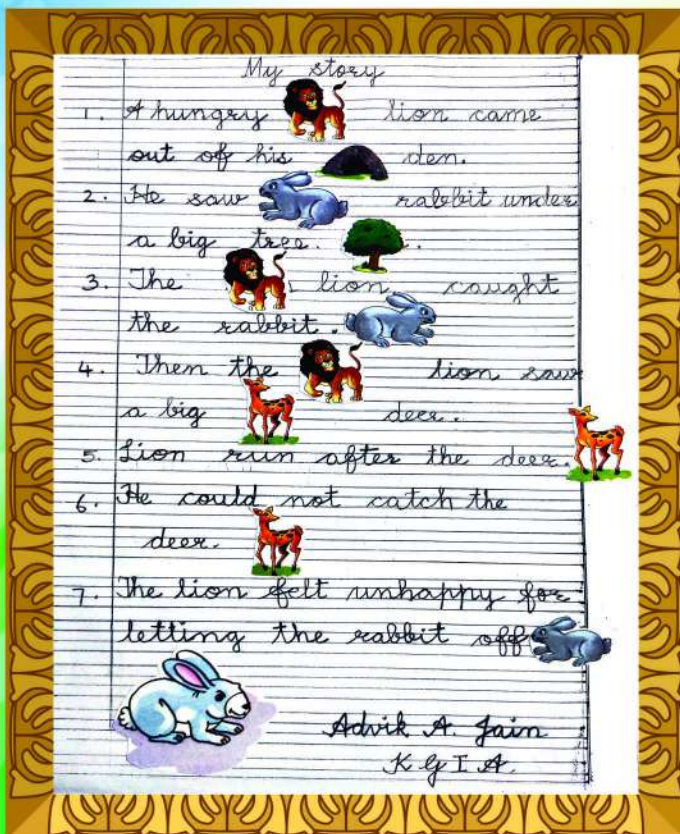 My story
1. A hungry lion came
out of his den.
2. He saw rabbit under
a big tree.
3. The lion caught
the rabbit.
4. Then the lion saw
a big deer.
5. Lion run after the deer.
6. He could not catch the
deer.
7. The lion felt unhappy for
letting the rabbit off
Advik A. Jain
K G I A.